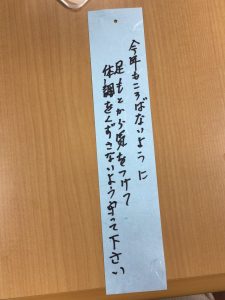 今年もころばないように
足もとから気をつけて
体調をくずさないよう守って下さい